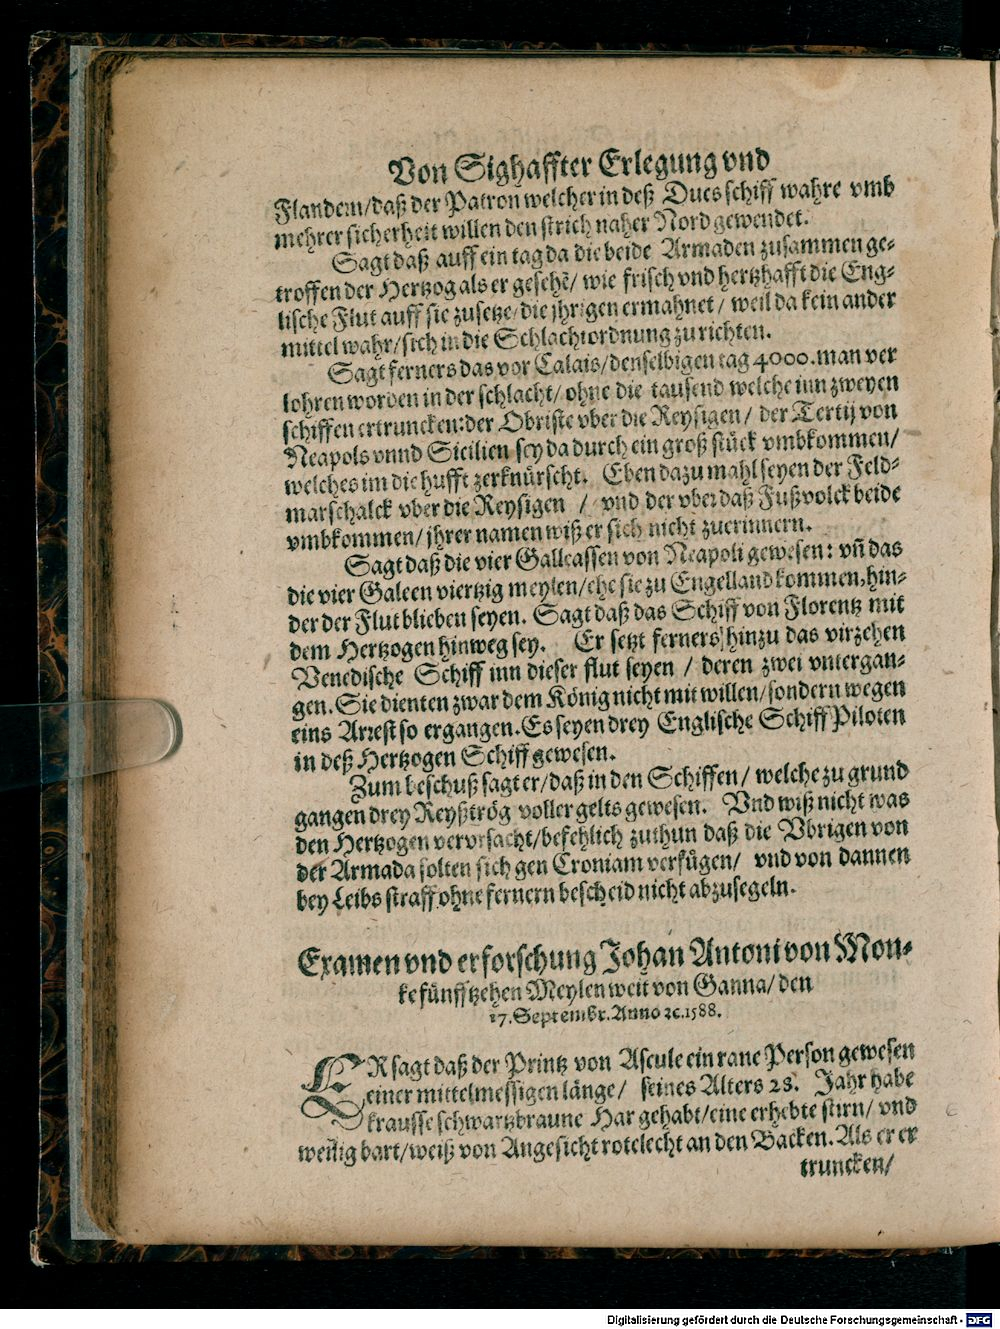 Von Sighaffter Erlegung vnd
Flandern/daß der Patron welcher in deß Ducs schiff wahre vmb
mehrer sicherheit willen den strich naher Nord gewendet.
Sagt daß auff ein tag da die beide Armaden zusammen ge-
troffen der Hertzog als er gesehē/ wie frisch vnd hertzhafft die Eng-
lische Flut auff sie zusetze/die jhrigen ermahnet/ weil da kein ander
mittel wahr/sich in die Schlachtordnung zu richten.
Sagt ferners das vor Calais/denselbigen tag 4000.man ver
lohren worden in der schlacht/ ohne die tausend welche inn zweyen
schiffen ertruncken:der Obriste vber die Reysigen/ der Tertij von
Neapols vnnd Sicilien sey da durch ein groß stück vmbkommen/
welches im die hufft zerknürscht. Eben dazumahl seyen der Feld-
marschalck vber die Reysigen / vnd der vber daß Fußvolck beide
vmbkommen/ jhrer namen wiß er sich nicht zuerinnern.
Sagt daß die vier Galleassen von Neapoli gewesen: vñ das
die vier Galeen viertzig meylen/ehe sie zu Engelland kommen,hin-
der der Flut blieben seyen. Sagt daß das Schiff von Florentz mit
dem Hertzogen hinweg sey. Er setzt ferners hinzu das virzehen
Venedische Schiff inn dieser flut seyen / deren zwei vntergan-
gen. Sie dienten zwar dem König nicht mit willen/sondern wegen
eins Arrest so ergangen. Es seyen drey Englische Schiff Piloten
in deß Hertzogen Schiff gewesen.
Zum beschuß sagt er/daß in den Schiffen/ welche zu grund
gangen drey Reyßtrög voller gelts gewesen. Vnd wiß nicht was
den Hertzogen vervrsacht/befehlich zuthun daß die Vbrigen von
der Armada solten sich gen Croniam verfügen/ vnd von dannen
bey Leibs straff ohne fernern bescheid nicht abzusegeln.
Examen vnd erforschung Johan Antoni von Mon-
ke fünfftzehen Meylen weit von Ganna/ den
17. Septembr. Anno ꝛc. 1588.
ER sagt daß der Printz von Ascule ein rane Person gewesen
einer mittelmessigen länge/ seines Alters 28. Jahr habe
krausse schwartzbraune Har gehabt/eine erhebte stirn/ vnd
weilig bart/weiß von Angesicht rotelecht an den Backen. Als er er
truncken/
Digitalisierung gefördert durch die Deutsche Forschungsgemeinschaft - DFG